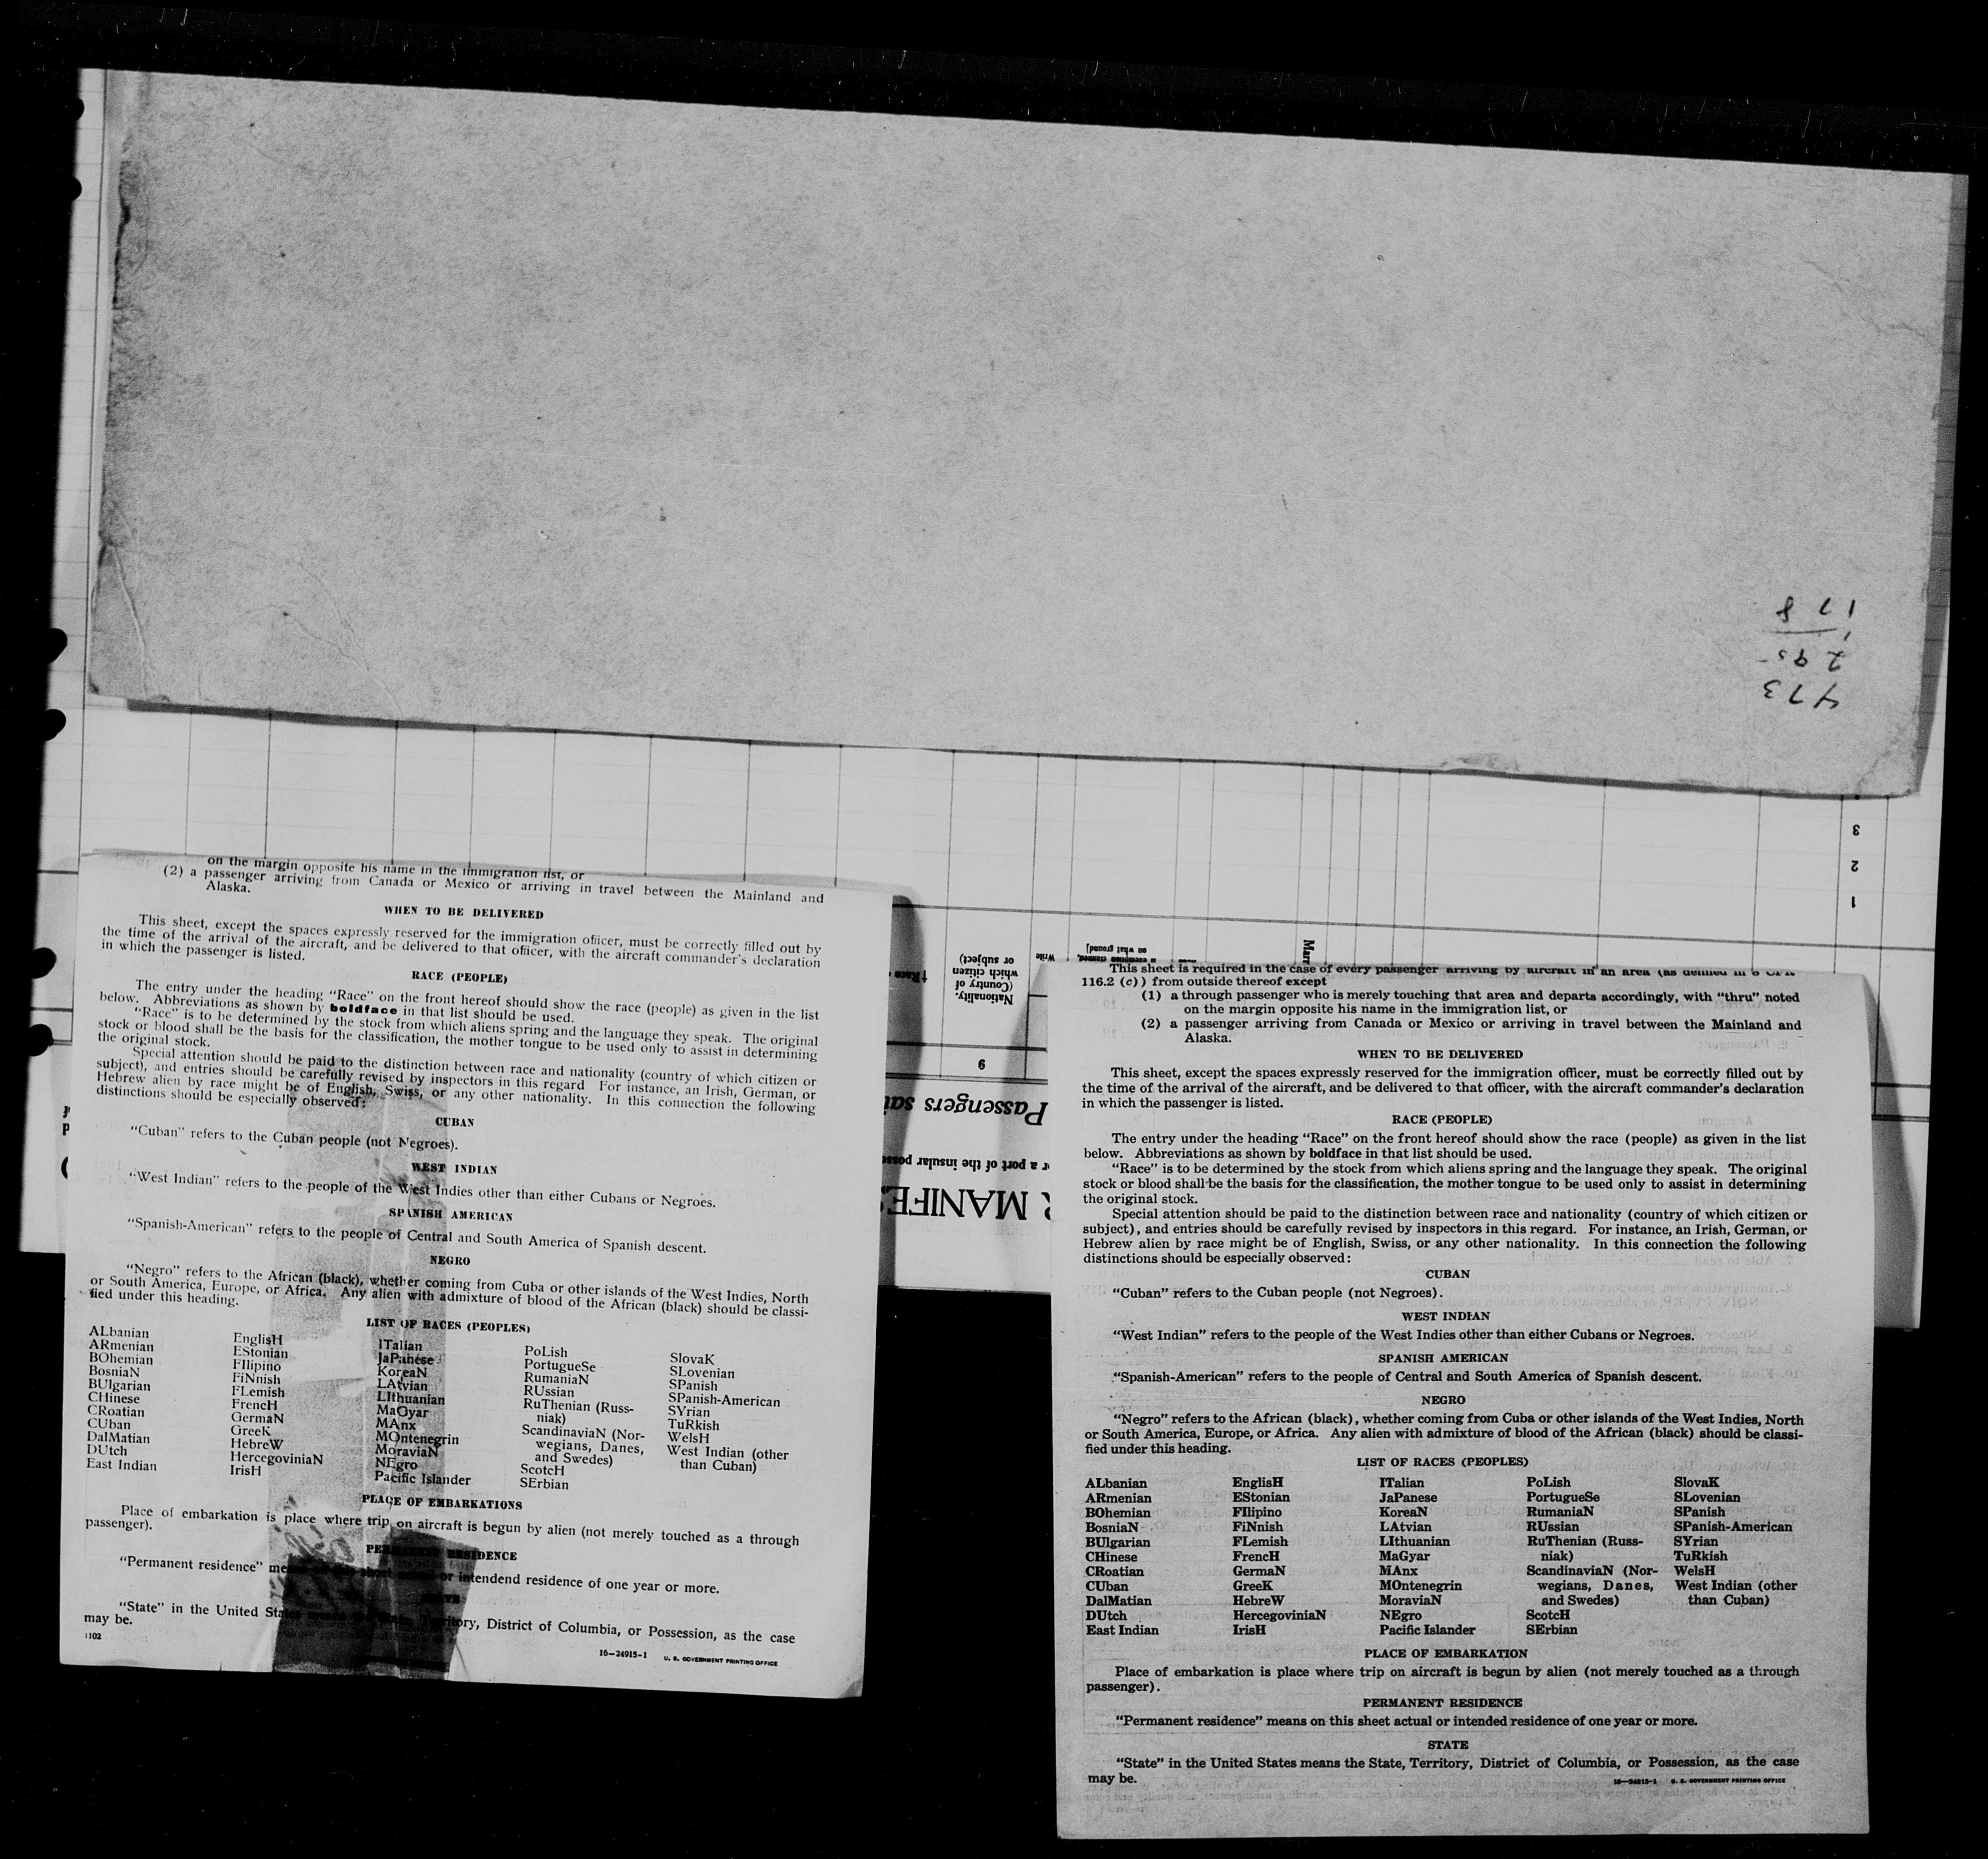 178
295
473
3
2
1
on the margin opposite his name in the immigration list, or
(2) a passenger arriving from Canada or Mexico or arriving in travel between the Mainland and
Alaska.
WHEN TO BE DELIVERED
This sheet, except the spaces expressly reserved for the immigration officer, must be correctly filled out by
the time of the arrival of the aircraft, and be delivered to that officer, with the aircraft commander's declaration
in which the passenger is listed.
RACE (PEOPLE)
The entry under the heading "Race" on the front hereof should show the race (people) as given in the list
below. Abbreviations as shown by boldface in that list should be used.
"Race" is to be determined by the stock from which aliens spring and the language they speak. The original
stock or blood shall be the basis for the classification, the mother tongue to be used only to assist in determining
the original stock.
Special attention should be paid to the distinction between race and nationality (country of which citizen or
subject), and entries should be carefully revised by inspectors in this regard For instance, an Irish, German, or
Hebrew alien by race might be of English, Swiss, or any other nationality. In this connection the following
distinctions should be especially observed:
CUBAN
"Cuban" refers to the Cuban people (not Negroes).
WEST INDIAN
"West Indian" refers to the people of the West Indies other than either Cubans or Negroes.
SPANISH AMERICAN
"Spanish-American" refers to the people of Central and South America of Spanish descent.
NEGRO
"Negro" refers to the African (black), whether coming from Cuba or other islands of the West Indies, North
or South America, Europe, or Africa. Any alien with admixture of blood of the African (black) should be classi-
fied under this heading.
LIST OF RACES (PEOPLES)
ALbanian
ARmenian
BOhemian
BosniaN
BUlgarian
CHinese
CRoatian
CUban
DalMatian
DUtch
East Indian
EnglisH
EStonian
FIlipino
FiNnish
FLemish
FrencH
GermaN
GreeK
HebreW
HercegoviniaN
IrisH
ITalian
JaPanese
KoreaN
LAtvian
LIthuanian
MaGyar
MAnx
MOntenegrin
MoraviaN
NEgro
Pacific Islander
PoLish
PortugueSe
RumaniaN
RUssian
RuThenian (Russ-
niak)
ScandinaviaN (Nor-
wegians, Danes,
and Swedes)
ScotcH
SErbian
SlovaK
SLovenian
SPanish
SPanish-American
SYrian
TuRkish
WelsH
West Indian (other
than Cuban)
PLACE OF EMBARKATIONS
Place of embarkation is place where trip on aircraft is begun by alien (not merely touched as a through
passenger).
PERMANENT RESIDENCE
"Permanent residence" or intendend residence of one year or more.
STATE
"State" in the United States District of Columbia, or Possession, as the case
may be.
1102
16—24915-1 U. S. GOVERNMENT PRINTING OFFICE
on what ground]
Write
Nationality.
(Country of
which citizen
or subject)
†Race
9
Passengers sai
r a port of the insular posse
R MANIFES
This sheet is required in the case of every passenger arriving by aircraft in an area (as defined in 8 CFR
116.2 (c)) from outside thereof except
(1) a through passenger who is merely touching that area and departs accordingly, with "thru" noted
on the margin opposite his name in the immigration list, or
(2) a passenger arriving from Canada or Mexico or arriving in travel between the Mainland and
Alaska.
WHEN TO BE DELIVERED
This sheet, except the spaces expressly reserved for the immigration officer, must be correctly filled out by
the time of the arrival of the aircraft, and be delivered to that officer, with the aircraft commander's declaration
in which the passenger is listed.
RACE (PEOPLE)
The entry under the heading "Race" on the front hereof should show the race (people) as given in the list
below. Abbreviations as shown by boldface in that list should be used.
"Race" is to be determined by the stock from which aliens spring and the language they speak. The original
stock or blood shall be the basis for the classification, the mother tongue to be used only to assist in determining
the original stock.
Special attention should be paid to the distinction between race and nationality (country of which citizen or
subject), and entries should be carefully revised by inspectors in this regard. For instance, an Irish, German, or
Hebrew alien by race might be of English, Swiss, or any other nationality. In this connection the following
distinctions should be especially observed:
CUBAN
"Cuban" refers to the Cuban people (not Negroes).
WEST INDIAN
"West Indian" refers to the people of the West Indies other than either Cubans or Negroes.
SPANISH AMERICAN
"Spanish-American" refers to the people of Central and South America of Spanish descent.
NEGRO
"Negro" refers to the African (black), whether coming from Cuba or other islands of the West Indies, North
or South America, Europe, or Africa. Any alien with admixture of blood of the African (black) should be classi-
fied under this heading.
LIST OF RACES (PEOPLES)
ALbanian
ARmenian
BOhemian
BosniaN
BUlgarian
CHinese
CRoatian
CUban
DalMatian
DUtch
East Indian
EnglisH
EStonian
FIlipino
FiNnish
FLemish
FrencH
GermaN
GreeK
HebreW
HercegoviniaN
IrisH
ITalian
JaPanese
KoreaN
LAtvian
LIthuanian
MaGyar
MAnx
MOntenegrin
MoraviaN
NEgro
Pacific Islander
PoLish
PortugueSe
RumaniaN
RUssian
RuThenian (Russ-
niak)
ScandinaviaN (Nor-
wegians, Danes,
and Swedes)
ScotcH
SErbian
SlovaK
SLovenian
SPanish
SPanish-American
SYrian
TuRkish
WelsH
West Indian (other
than Cuban)
PLACE OF EMBARKATION
Place of embarkation is place where trip on aircraft is begun by alien (not merely touched as a through
passenger).
PERMANENT RESIDENCE
"Permanent residence" means on this sheet actual or intended residence of one year or more.
STATE
"State" in the United States means the State, Territory, District of Columbia, or Possession, as the case
may be.
16—24915-1 U. S. GOVERNMENT PRINTING OFFICE